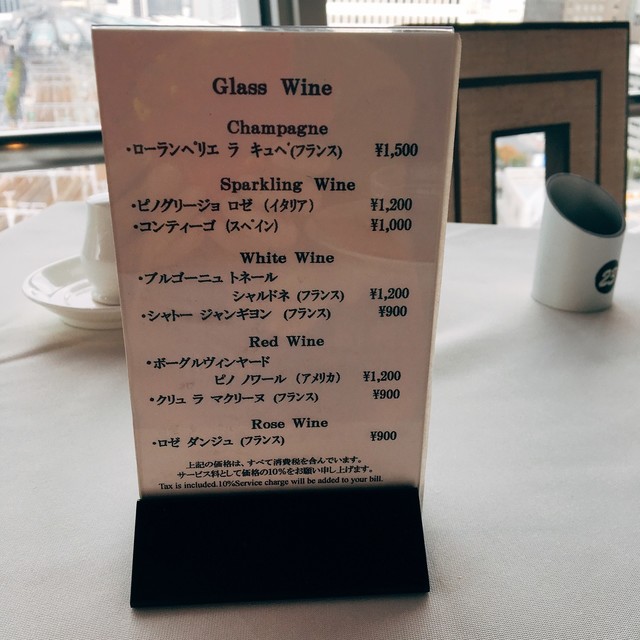 Glass Wine
Champagne
・ローランペリエ ラ キュベ(フランス) ¥1,500
Sparkling Wine
・ピノグリージョ ロゼ (イタリア) ¥1,200
・コンティーゴ (スペイン) ¥1,000
White Wine
・ブルゴーニュ トネール
シャルドネ (フランス) ¥1,200
・シャトー ジャンギヨン (フランス) ¥900
Red Wine
・ボーグルヴィンヤード
ピノ ノワール (アメリカ) ¥1,200
・クリュ ラ マクリーヌ (フランス) ¥900
Rose Wine
・ロゼ ダンジュ (フランス) ¥900
上記の価格は、すべて消費税を含んでいます。
サービス料として価格の10%をお願い申し上げます。
Tax is included.10%Service charge will be added to your bill.